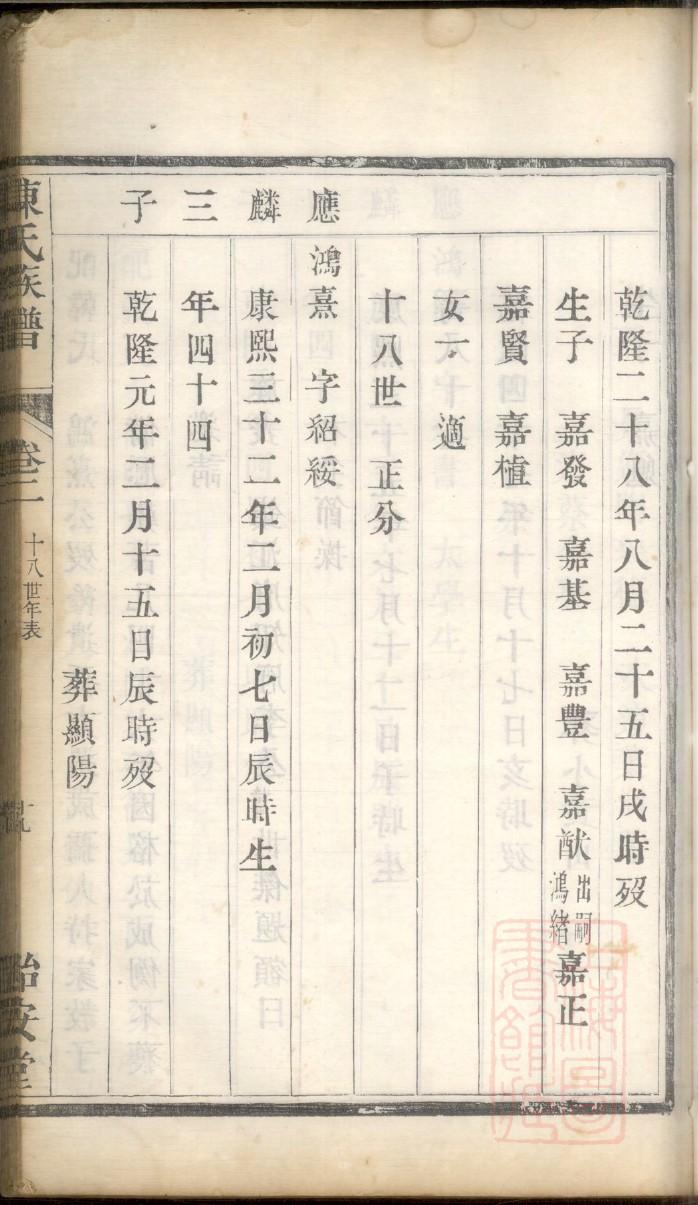 乾隆二十八年八月二十五日戌時歿
生子　嘉發　嘉基　嘉豐　嘉猷出嗣鴻緒嘉正
嘉賢　嘉植
女一　適
十八世　正分
應
鴻熹　字紹綏
麟
康熙三十二年二月初七日辰時生
三
年四十四
子
乾隆元年二月十五日辰時歿
葬顯陽
陳氏族譜
卷二
十八世年表
怡安堂
上海圖書館藏